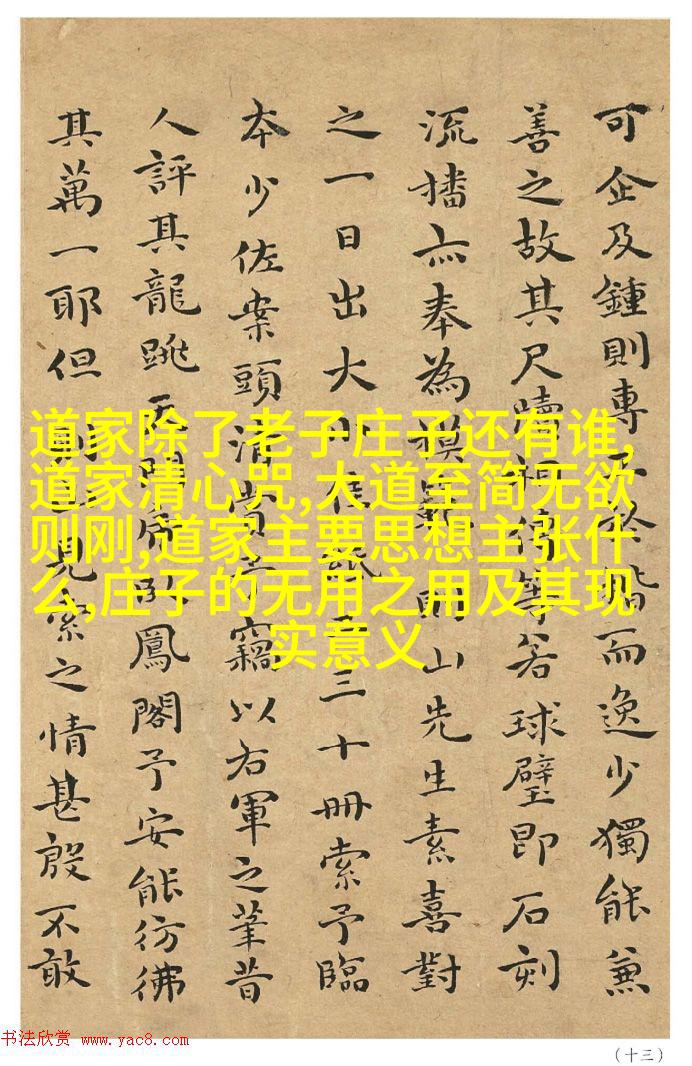 可企及鍾則專
而逸少獨能兼
善之故其尺牘
等若球璧即石刻
流播亦奉為
山先生素喜對
之一日出大
三十冊索予臨
本少佐案頭清
竊以右軍之筆昔
人評其龍跳天門
鳳閣予安能彷彿
其萬一耶但
見索之情甚殷不敢
道家除了老子庄子还有谁,
道家清心咒,大道至简无欲
则刚,道家主要思想主张什
么,庄子的无用之用及其现
实意义
书法欣赏 www.yac8.com
（十三）